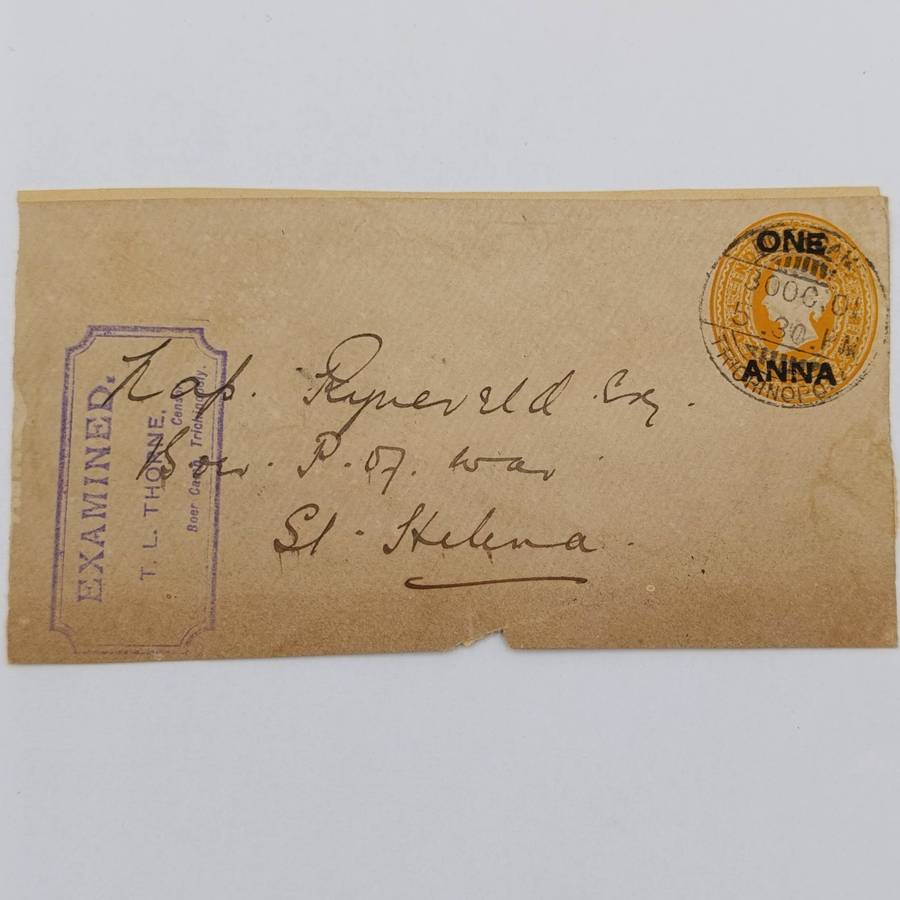 ONE
30 OC. 01
5.30 PM
TRICHINOPOLY
ANNA
Cap. Ryneveld Esq.
Boer. P. of. war.
St. Helena.
EXAMINED.
T. L. THORNE,
Censor
Boer Camp, Trichinopoly.